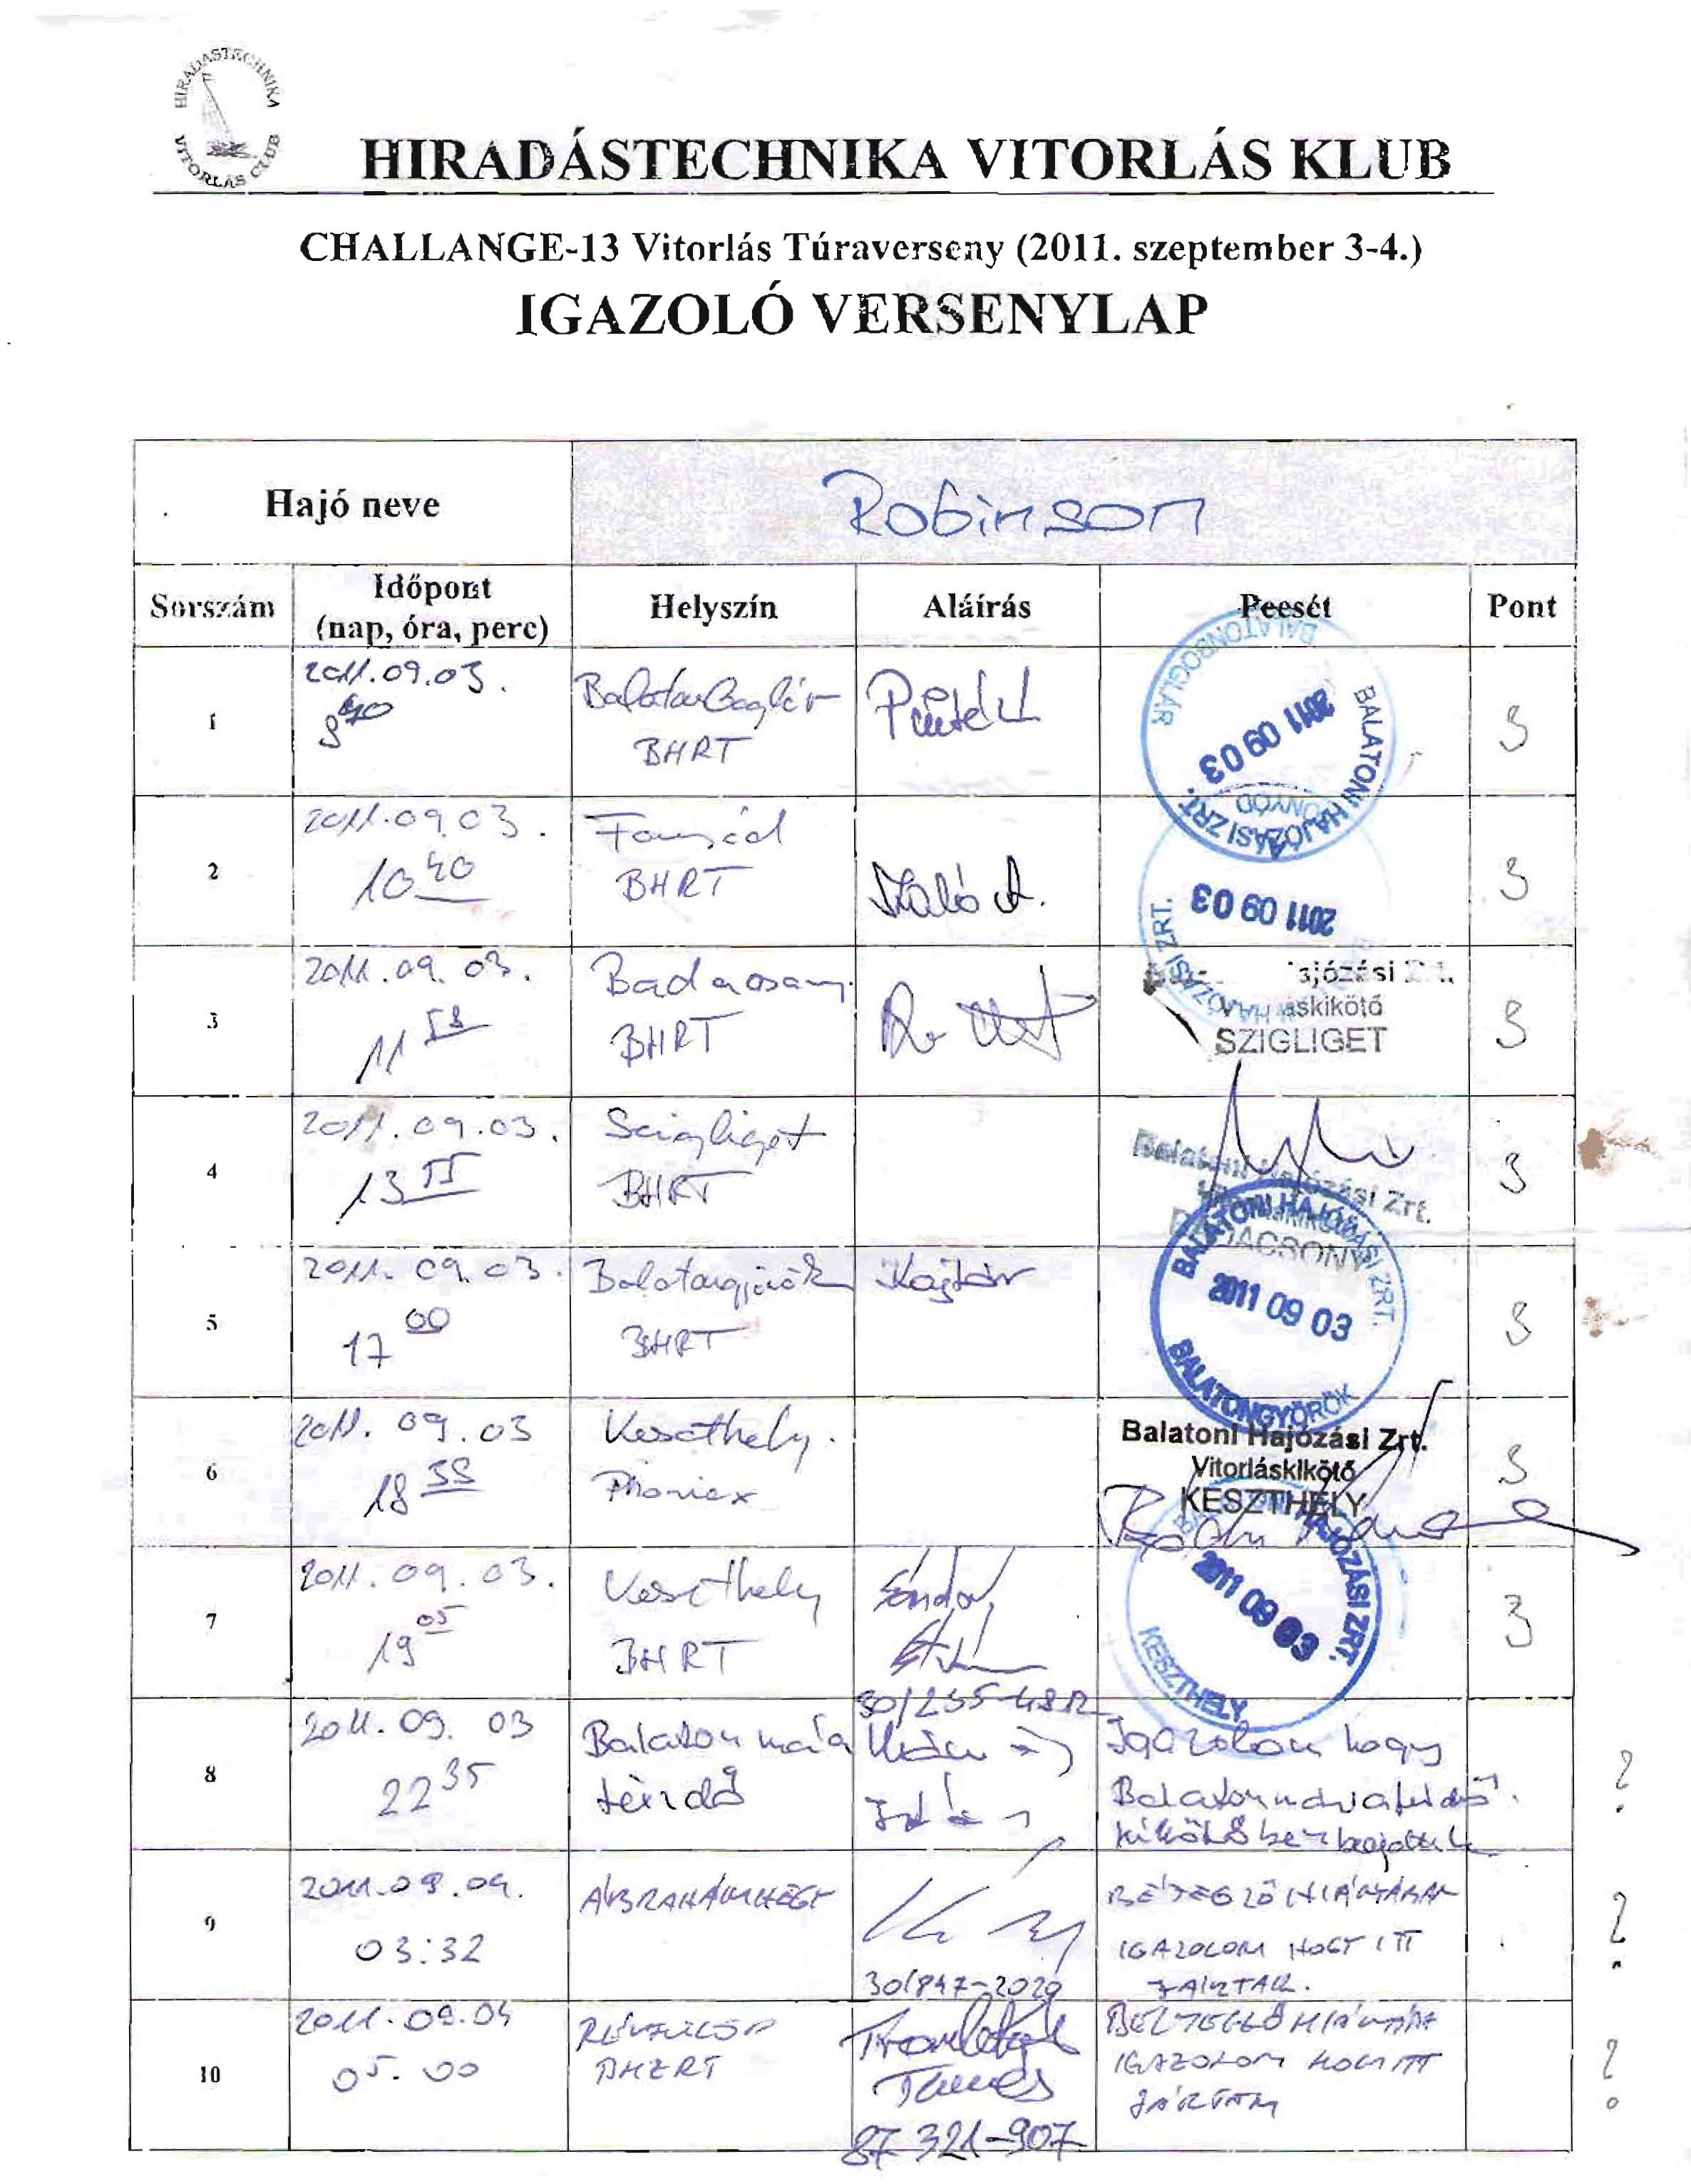 HIRADÁSTECHNIKA
VITORLÁS CLUB
HIRADÁSTECHNIKA VITORLÁS KLUB
CHALLANGE-13 Vitorlás Túraverseny (2011. szeptember 3-4.)
IGAZOLÓ VERSENYLAP
Hajó neve
Robinson
Sorszám
Időpont
(nap, óra, perc)
Helyszín
Aláírás
Pecsét
Pont
1
2011.09.03.
9 40
Balatonboglár
BHRT
BALATONI HAJÓZÁSI ZRT.
2011 09 03
BALATONBOGLÁR
3
2
2011.09.03.
10 40
Fonyód
BHRT
Szabó A.
FONYÓD
2011 09 03
3
3
2011.09.03.
11 53
Badacsony
BHRT
SZIGLIGET
3
4
2011.09.03.
13 55
Szigliget
BHRT
Balatoni Hajózási Zrt.
BADACSONY
3
5
2011.09.03.
17 00
Balatongyörök
BHRT
Kajtár
BALATONI HAJÓZÁSI ZRT.
2011 09 03
BALATONGYÖRÖK
3
6
2011.09.03
18 35
Keszthely.
Phoniex
Balatoni Hajózási Zrt.
Vitorláskikötő
KESZTHELY
3
7
2011.09.03.
19 05
Keszthely
BHRT
Sándor
HAJÓZÁSI ZRT.
2011 09 03
KESZTHELY
3
8
2011.09.03
22 35
Balatonmária
fürdő
Igazolom hogy
Balatonmáriafürdő
kikötőben
?
9
2011.09.04.
03:32
ÁBRAHÁMHEGY
30/847-2020
BÉLYEGZŐ HIÁNYÁBAN
IGAZOLOM HOGY ITT
JÁRTAK.
?
10
2011.09.04
05.00
RÉVFÜLÖP
BHZRT
Tamás
87 321-907
BÉLYEGZŐ HIÁNYÁBAN
IGAZOLOM HOGY ITT
JÁRTAK
?